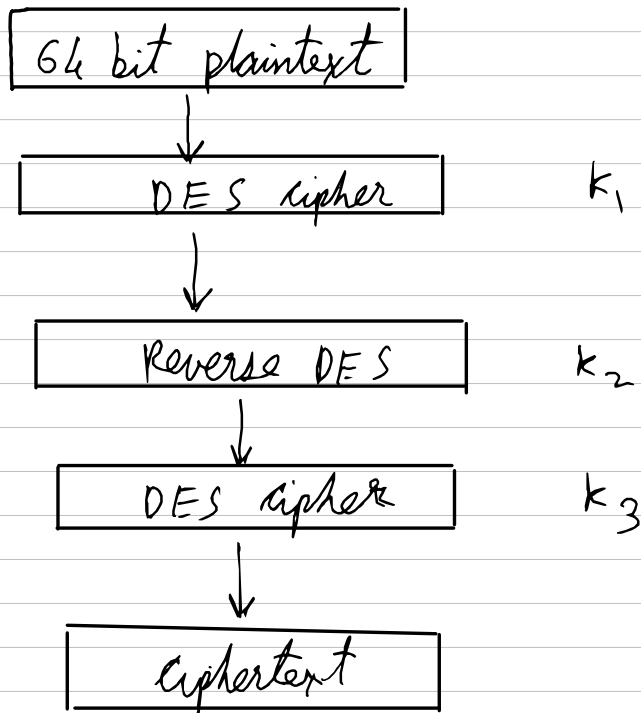 64 bit plaintext
DES cipher k1
Reverse DES k2
DES cipher k3
ciphertext